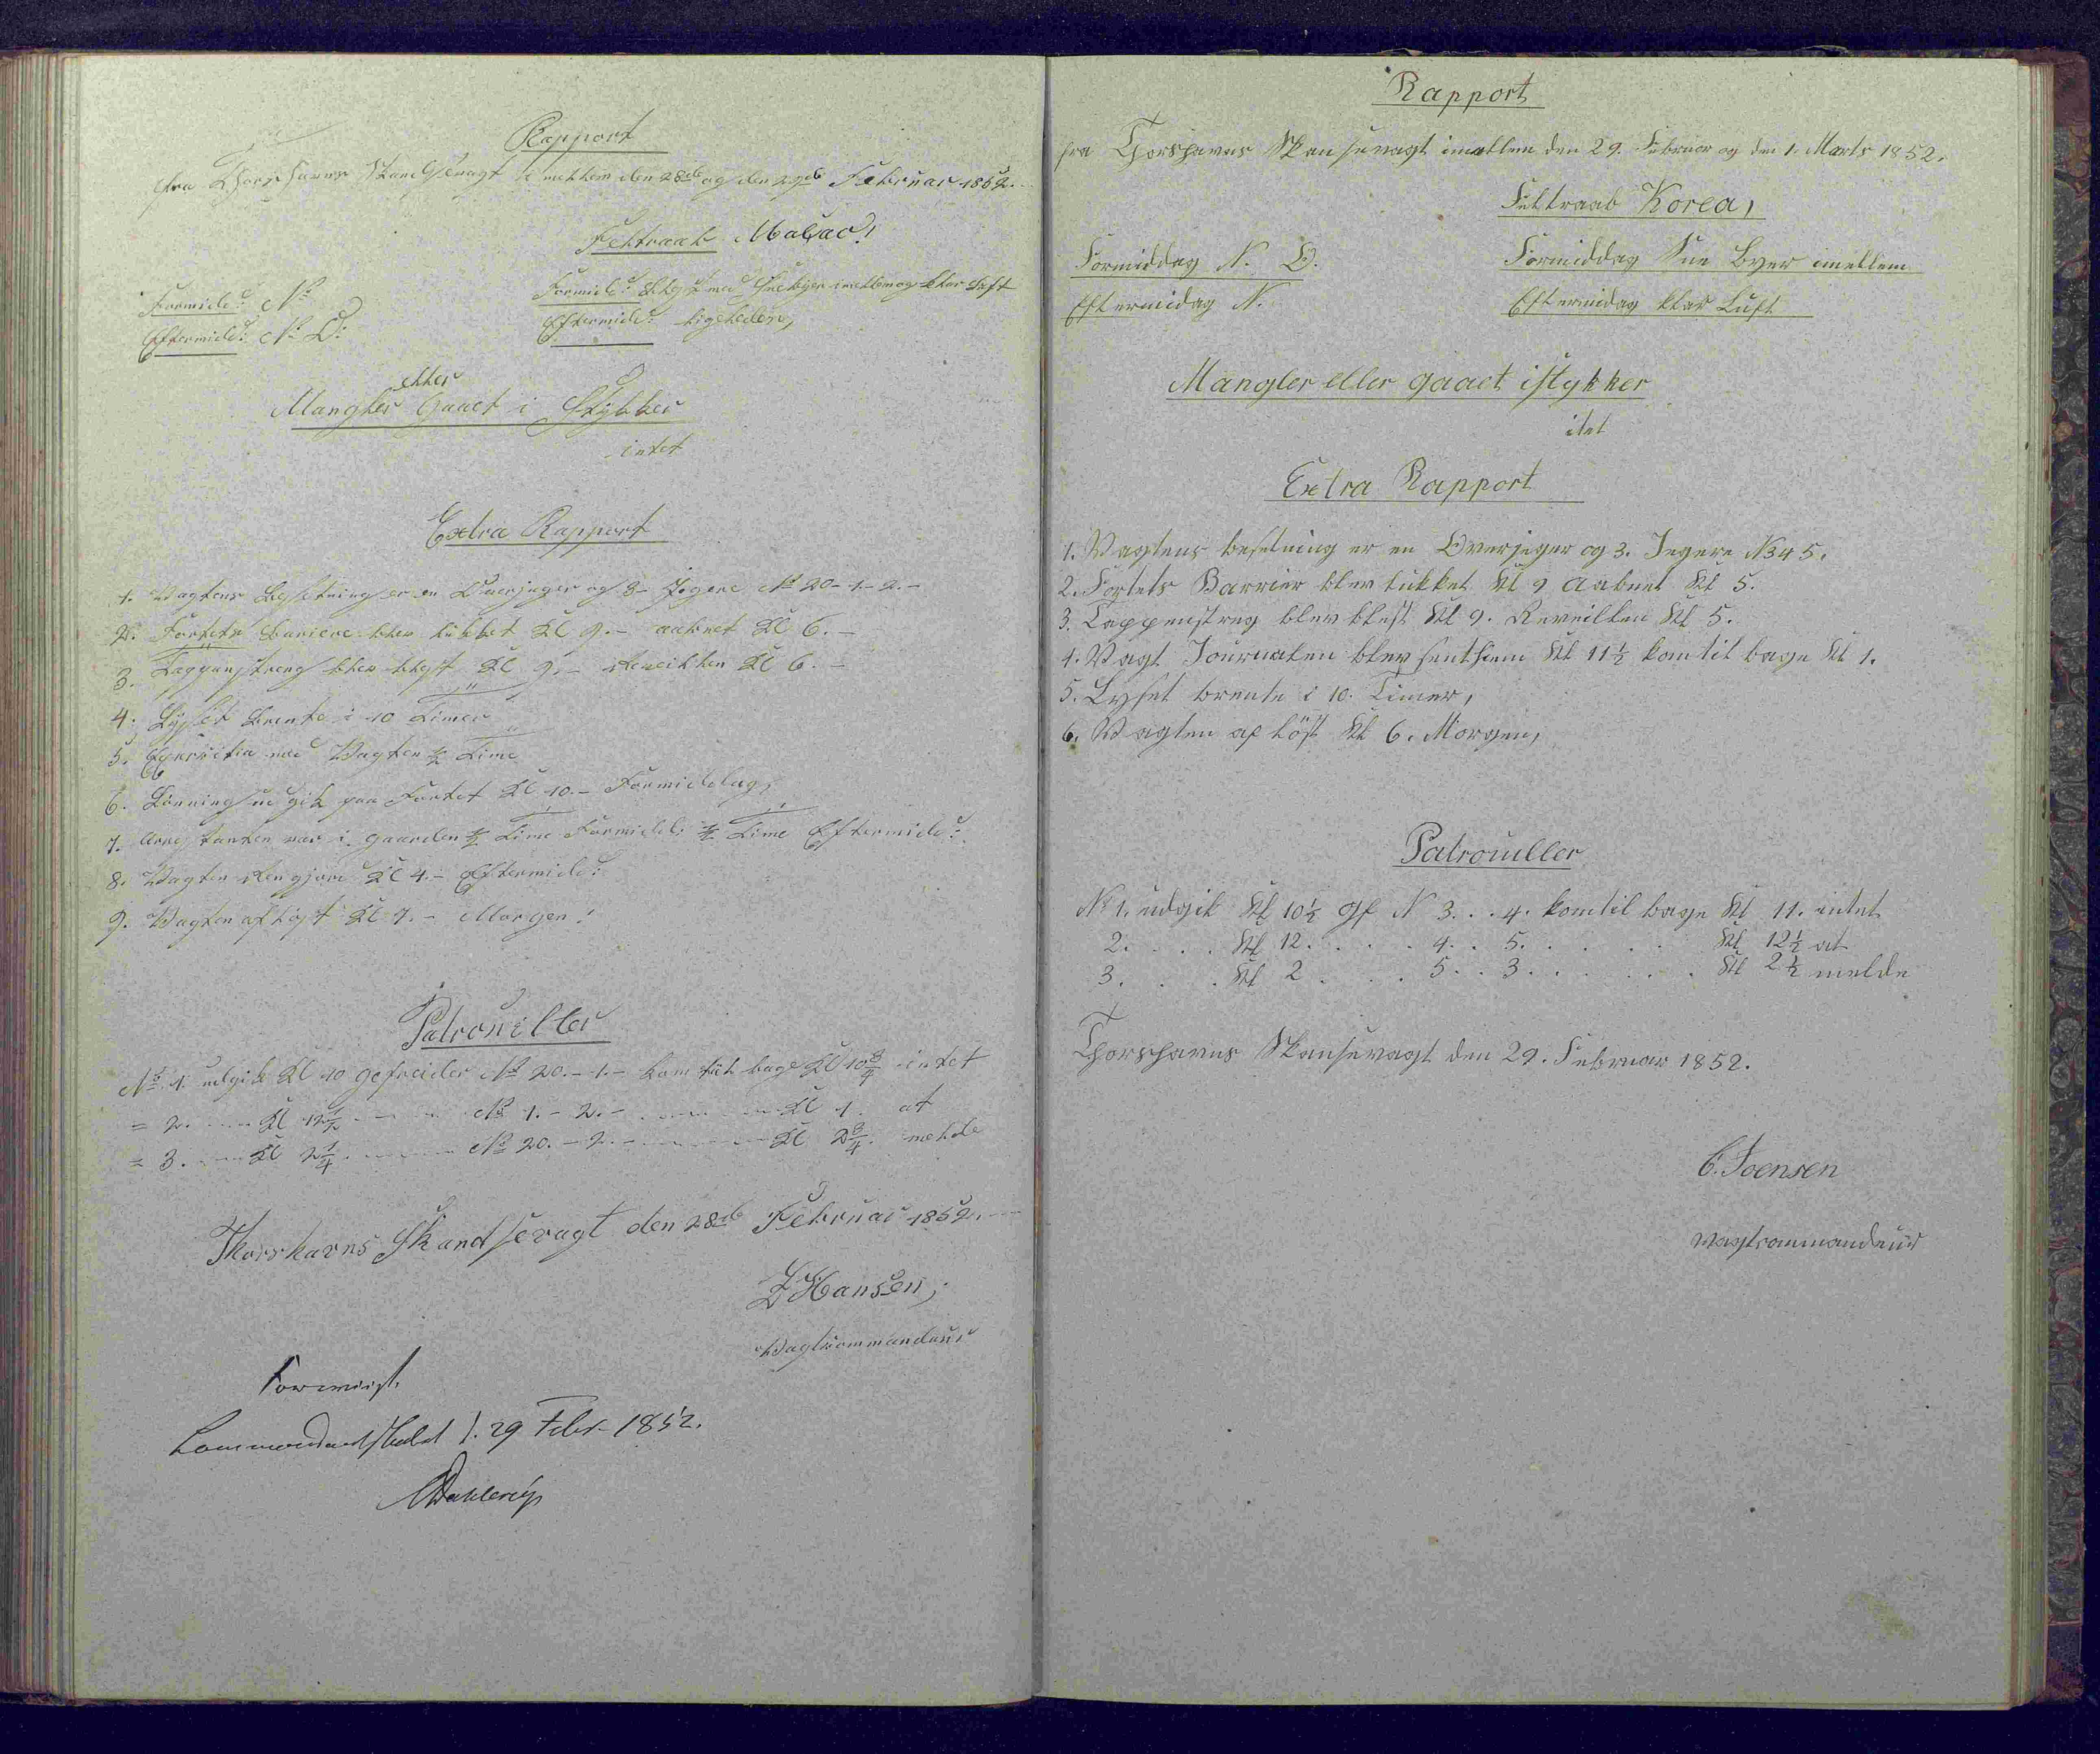 Rapport
fra Thorshavns Skandsevagt imellem den 28de og den 29de Februar 1852.
Feltraab Macao!
Formidd: N:
Formidd: med Sneebyer imellem og klar Luft
Eftermidd: N: O:
Eftermidd: ligeledes,
Mangler eller Gaaet i Stykker
intet
Extra Rapport
1. Vagtens Besetning er en Overjæger og 3 Jægere No 20-1-2.-
2. Fortets Bariere blev lukket Kl 9.- aabnet Kl 6.-
3. Tappenstreng blev blest Kl 9.- Reveillen Kl 6.-
4. Lyset brente i 10 Timer
5. Exersitie med Vagten ½ Time
6. Lønning udgik paa Fortet Kl 10.- Formiddag,
7. Arrestanten var i Gaarden ½ Time Formidd: ½ Time Eftermidd:
8. Vagten Rengjort Kl 4.- Eftermidd:
9. Vagten afløst Kl 7.- Morgen!
Patrouiller
No 1. udgik Kl 10 gefreider No 20.-1.- kom tilbage Kl 10¾ intet
= 2. Kl 12½ No 1.-2.- Kl 1. at
= 3. Kl 2¼ No 20.-2.- Kl 2¾. melde
Thorshavns Skandsevagt den 28de Februar 1852.
Z Hansen,
Vagtcommandeur
Foreviist.
Commandantskabet d. 29 Febr. 1852.
Dahlerup
Rapport
fra Thorshavns Skansevagt imellem den 29. Februar og den 1. Marts 1852.
Feltraab Korea,
Formiddag N. O.
Formiddag Sne Byer imellem
Eftermidag N.
Eftermidag klar Luft
Mangler eller gaaet istykker
itet
Extra Rapport
1. Vagtens besetning er en Overjeger og 3. Jegere N 3 4 5.
2. Fortets Barrier blev lukket Kl 9 aabnet Kl 5.
3. Tappenstreg blev blest Kl 9. Reveillen Kl 5.
4. Vagt Journalen blev sent hiem Kl 11½ kom tilbage Kl 1.
5. Lyset brente i 10. Timer,
6. Vagten af löst Kl 6. Morgen,
Patrouller
No 1. udgik Kl 10½ Gf N 3. . . 4. kom tilbage Kl 11. intet
2. . . . Kl 12. . . . . 4. . 5. . . . . . Kl 12½ at
3. . . . Kl 2 . . . . 5. . 3. . . . . . Kl 2½ melde
Thorshavns Skansevagt den 29. Februar 1852.
C. Joensen
vagtcommandeur